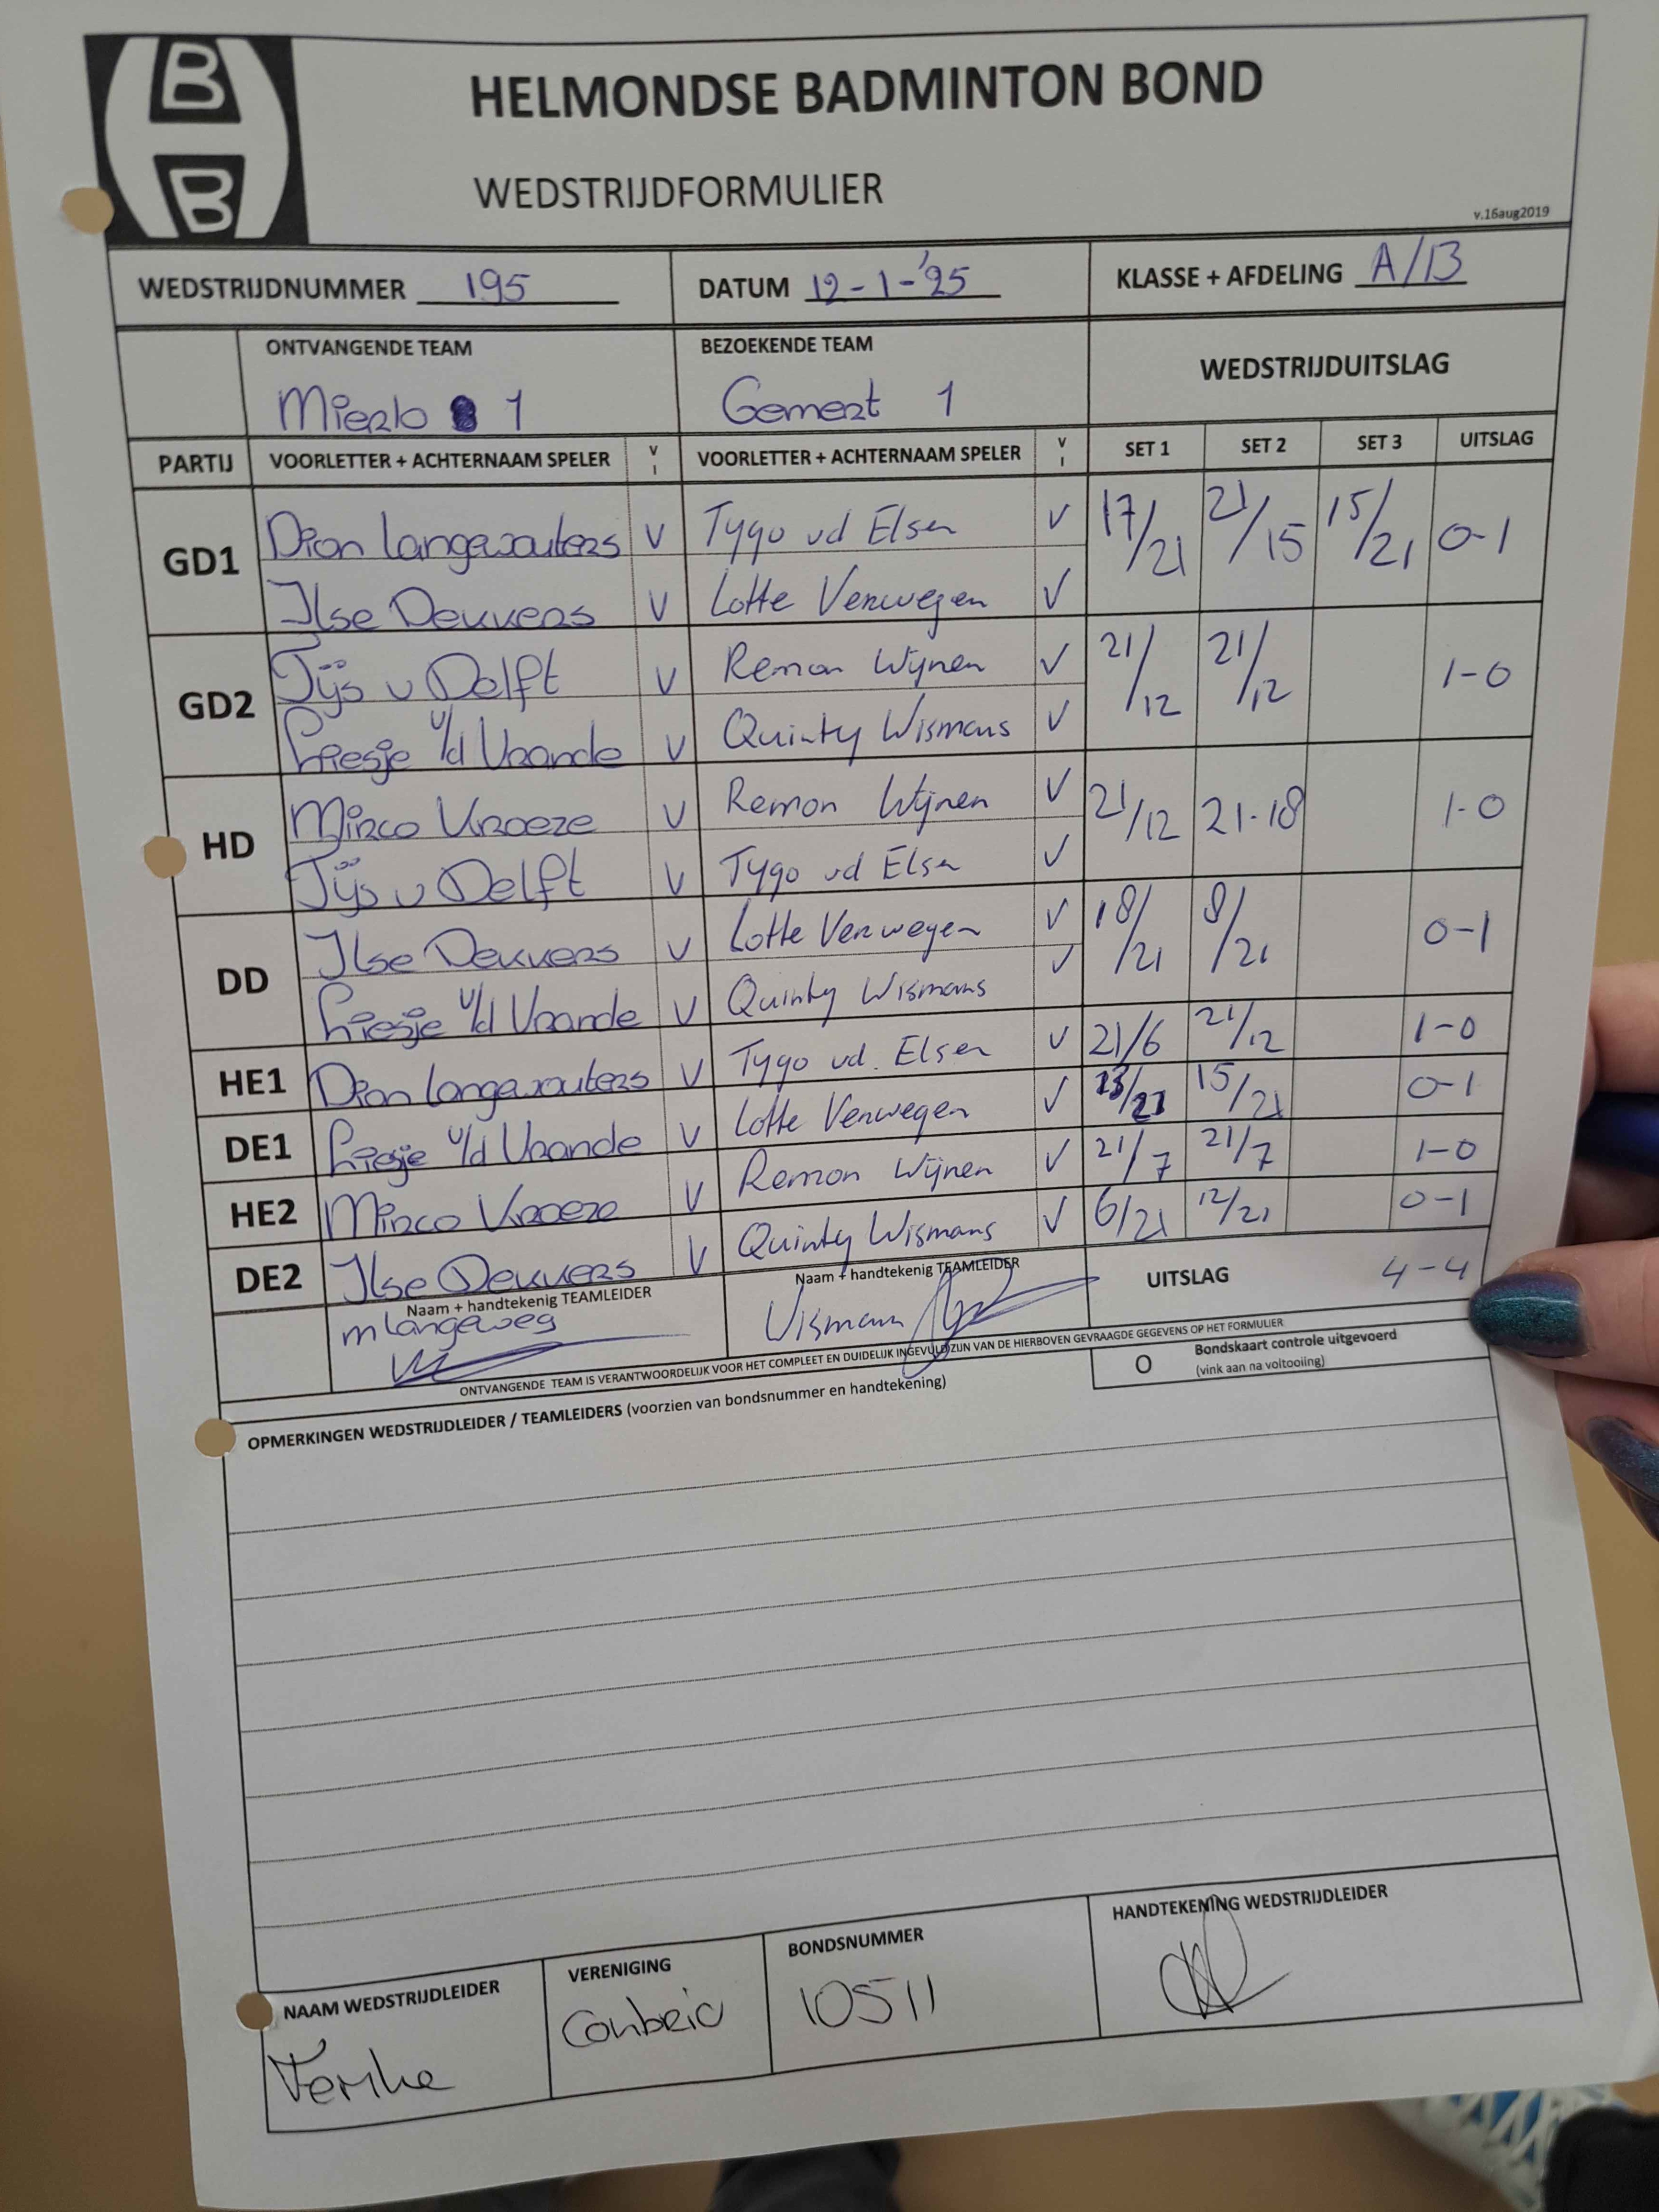 B
B
HELMONDSE BADMINTON BOND
WEDSTRIJDFORMULIER
v.16aug2019
WEDSTRIJDNUMMER 195 DATUM 12-1-'25 KLASSE + AFDELING A/B
ONTVANGENDE TEAM BEZOEKENDE TEAM WEDSTRIJDUITSLAG
Mierlo 1 Gemert 1
PARTIJ VOORLETTER + ACHTERNAAM SPELER V I VOORLETTER + ACHTERNAAM SPELER V I SET 1 SET 2 SET 3 UITSLAG
GD1 Dion Langewouters V Tygo vd Elsen V 17/21 21/15 15/21 0-1
Ilse Dekkers V Lotte Verwegen V
GD2 Tijs v Delft V Remon Wijnen V 21/12 21/12 1-0
Liesje v/d Vrande V Quinty Wismans V
HD Mirco Kroeze V Remon Wijnen V 21/12 21-18 1-0
Tijs v Delft V Tygo vd Elsen V
DD Ilse Dekkers V Lotte Verwegen V 18/21 8/21 0-1
Liesje v/d Vrande V Quinty Wismans V
HE1 Dion Langewouters V Tygo vd. Elsen V 21/6 21/12 1-0
DE1 Liesje v/d Vrande V Lotte Verwegen V 15/21 0-1
HE2 Mirco Kroeze V Remon Wijnen V 21/7 21/7 1-0
DE2 Ilse Dekkers V Quinty Wismans V 6/21 12/21 0-1
Naam + handtekenig TEAMLEIDER Naam + handtekenig TEAMLEIDER UITSLAG 4-4
m Langeweg Wismans
ONTVANGENDE TEAM IS VERANTWOORDELIJK VOOR HET COMPLEET EN DUIDELIJK INGEVULD ZIJN VAN DE HIERBOVEN GEVRAAGDE GEGEVENS OP HET FORMULIER
O Bondskaart controle uitgevoerd
(vink aan na voltooiing)
OPMERKINGEN WEDSTRIJDLEIDER / TEAMLEIDERS (voorzien van bondsnummer en handtekening)
NAAM WEDSTRIJDLEIDER VERENIGING BONDSNUMMER HANDTEKENING WEDSTRIJDLEIDER
Femke Conbrio 10511